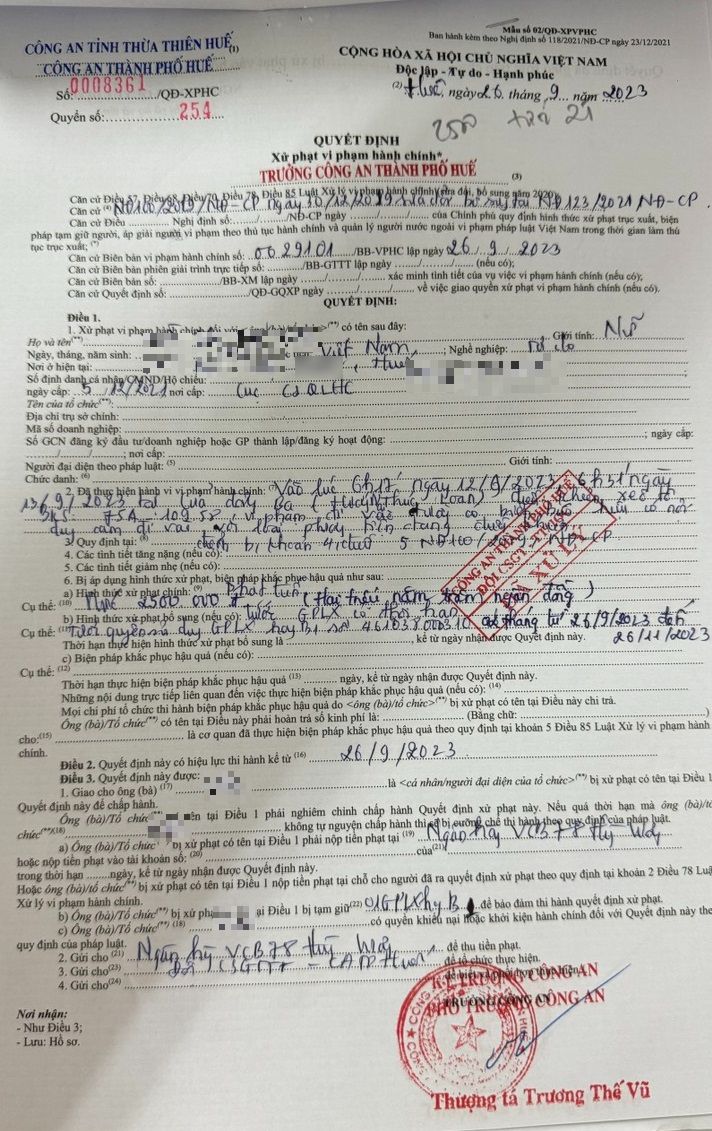 Mẫu số 02/QĐ-XPVPHC
Ban hành kèm theo Nghị định số 118/2021/NĐ-CP ngày 23/12/2021
CÔNG AN TỈNH THỪA THIÊN HUẾ(1)
CÔNG AN THÀNH PHỐ HUẾ
Số: 0008361 /QĐ-XPHC
Quyển số: 254
CỘNG HÒA XÃ HỘI CHỦ NGHĨA VIỆT NAM
Độc lập - Tự do - Hạnh phúc
(2) Huế, ngày 26 tháng 9 năm 2023
QUYẾT ĐỊNH
Xử phạt vi phạm hành chính*
TRƯỞNG CÔNG AN THÀNH PHỐ HUẾ (3)
Căn cứ Điều 57, Điều 68, Điều 70, Điều 78, Điều 85 Luật Xử lý vi phạm hành chính (sửa đổi, bổ sung năm 2020);
Căn cứ (4) NĐ100/2019/NĐ-CP ngày 30/12/2019 sửa đổi bổ sung tại NĐ123/2021 NĐ-CP
Căn cứ Điều ........ Nghị định số: ......../......../NĐ-CP ngày ......../......../........ của Chính phủ quy định hình thức xử phạt trục xuất, biện
pháp tạm giữ người, áp giải người vi phạm theo thủ tục hành chính và quản lý người nước ngoài vi phạm pháp luật Việt Nam trong thời gian làm thủ
tục trục xuất;
Căn cứ Biên bản vi phạm hành chính số: 0029101 /BB-VPHC lập ngày 26/9/2023
Căn cứ Biên bản phiên giải trình trực tiếp số: ......../BB-GTTT lập ngày ......../......../........ (nếu có);
Căn cứ Biên bản số: ......../BB-XM lập ngày ......../......../........ xác minh tình tiết của vụ việc vi phạm hành chính (nếu có);
Căn cứ Quyết định số: ......../QĐ-GQXP ngày ......../......../........ về việc giao quyền xử phạt vi phạm hành chính (nếu có).
QUYẾT ĐỊNH:
Điều 1.
1. Xử phạt vi phạm hành chính đối với <ông (bà)/tổ chức>(**) có tên sau đây:
Họ và tên(**): Giới tính: Nữ
Ngày, tháng, năm sinh: Việt Nam; Nghề nghiệp: Tự do
Nơi ở hiện tại: , Huế
Số định danh cá nhân/CMND/Hộ chiếu:
ngày cấp: 5/12/2021 nơi cấp: Cục CSQLHC
Tên của tổ chức(**):
Địa chỉ trụ sở chính:
Mã số doanh nghiệp:
Số GCN đăng ký đầu tư/doanh nghiệp hoặc GP thành lập/đăng ký hoạt động: ; ngày cấp:
......../......../........; nơi cấp:
Người đại diện theo pháp luật: (5) Giới tính:
Chức danh: (6)
2. Đã thực hiện hành vi vi phạm hành chính: (7) Vào lúc 6h17' ngày 12/9/2023, 6h51' ngày
13/9/2023 tại
BKS: 75A-109.58, vi phạm đi vào
3. Quy định tại: (8) điểm b, khoản 4, điều 5 NĐ100/2019/NĐ-CP
4. Các tình tiết tăng nặng (nếu có):
5. Các tình tiết giảm nhẹ (nếu có):
6. Bị áp dụng hình thức xử phạt, biện pháp khắc phục hậu quả như sau:
a) Hình thức xử phạt chính: (9) Phạt tiền
Cụ thể: (10) Mức 2500.000đ (Hai triệu năm trăm ngàn đồng)
b) Hình thức xử phạt bổ sung (nếu có): Tước GPLX có thời hạn
Cụ thể: (11) Tước quyền sử dụng GPLX hạng B1 số tháng từ 26/9/2023 đến
Thời hạn thực hiện hình thức xử phạt bổ sung là ........ kể từ ngày nhận được Quyết định này. 26/11/2023
c) Biện pháp khắc phục hậu quả (nếu có):
Cụ thể: (12)
Thời hạn thực hiện biện pháp khắc phục hậu quả (13) ........ ngày, kể từ ngày nhận được Quyết định này.
Những nội dung trực tiếp liên quan đến việc thực hiện biện pháp khắc phục hậu quả (nếu có): (14)
Mọi chi phí tổ chức thi hành biện pháp khắc phục hậu quả do <ông (bà)/tổ chức>(**) bị xử phạt có tên tại Điều này chi trả.
Ông (bà)/Tổ chức(**) có tên tại Điều này phải hoàn trả số kinh phí là: ........ (Bằng chữ: ........)
cho:(15) ........ là cơ quan đã thực hiện biện pháp khắc phục hậu quả theo quy định tại khoản 5 Điều 85 Luật Xử lý vi phạm hành
chính.
CÔNG AN THÀNH PHỐ HUẾ
ĐỘI CSGT-TT
ĐÃ XỬ LÝ
Điều 2. Quyết định này có hiệu lực thi hành kể từ (16) 26/9/2023
Điều 3. Quyết định này được:
1. Giao cho ông (bà) (17) ........ là <cá nhân/người đại diện của tổ chức>(**) bị xử phạt có tên tại Điều 1
Quyết định này để chấp hành.
Ông (bà)/Tổ chức(**) có tên tại Điều 1 phải nghiêm chỉnh chấp hành Quyết định xử phạt này. Nếu quá thời hạn mà ông (bà)/tổ
chức(**)(18) ........ không tự nguyện chấp hành thì sẽ bị cưỡng chế thi hành theo quy định của pháp luật.
a) Ông (bà)/Tổ chức(**) bị xử phạt có tên tại Điều 1 phải nộp tiền phạt tại (19) Ngân hàng VCB 78 Hùng Vương
hoặc nộp tiền phạt vào tài khoản số: (20) ........ của(21) ........
trong thời hạn ........ ngày, kể từ ngày nhận được Quyết định này.
Hoặc ông (bà)/tổ chức(**) bị xử phạt có tên tại Điều 1 nộp tiền phạt tại chỗ cho người đã ra quyết định xử phạt theo quy định tại khoản 2 Điều 78 Luật
Xử lý vi phạm hành chính.
b) Ông (bà)/Tổ chức(**) bị xử phạt tại Điều 1 bị tạm giữ(22) 01 GPLX hạng B để bảo đảm thi hành quyết định xử phạt.
c) Ông (bà)/Tổ chức(**) (18) ........ có quyền khiếu nại hoặc khởi kiện hành chính đối với Quyết định này theo
quy định của pháp luật.
2. Gửi cho (21) Ngân hàng VCB 78 Hùng Vương để thu tiền phạt.
3. Gửi cho(23) Đội CSGTTT - CATP Huế để tổ chức thực hiện.
4. Gửi cho(24) để biết và phối hợp thực hiện.
Nơi nhận:
- Như Điều 3;
- Lưu: Hồ sơ.
KT. TRƯỞNG CÔNG AN
PHÓ TRƯỞNG CÔNG AN
Thượng tá Trương Thế Vũ